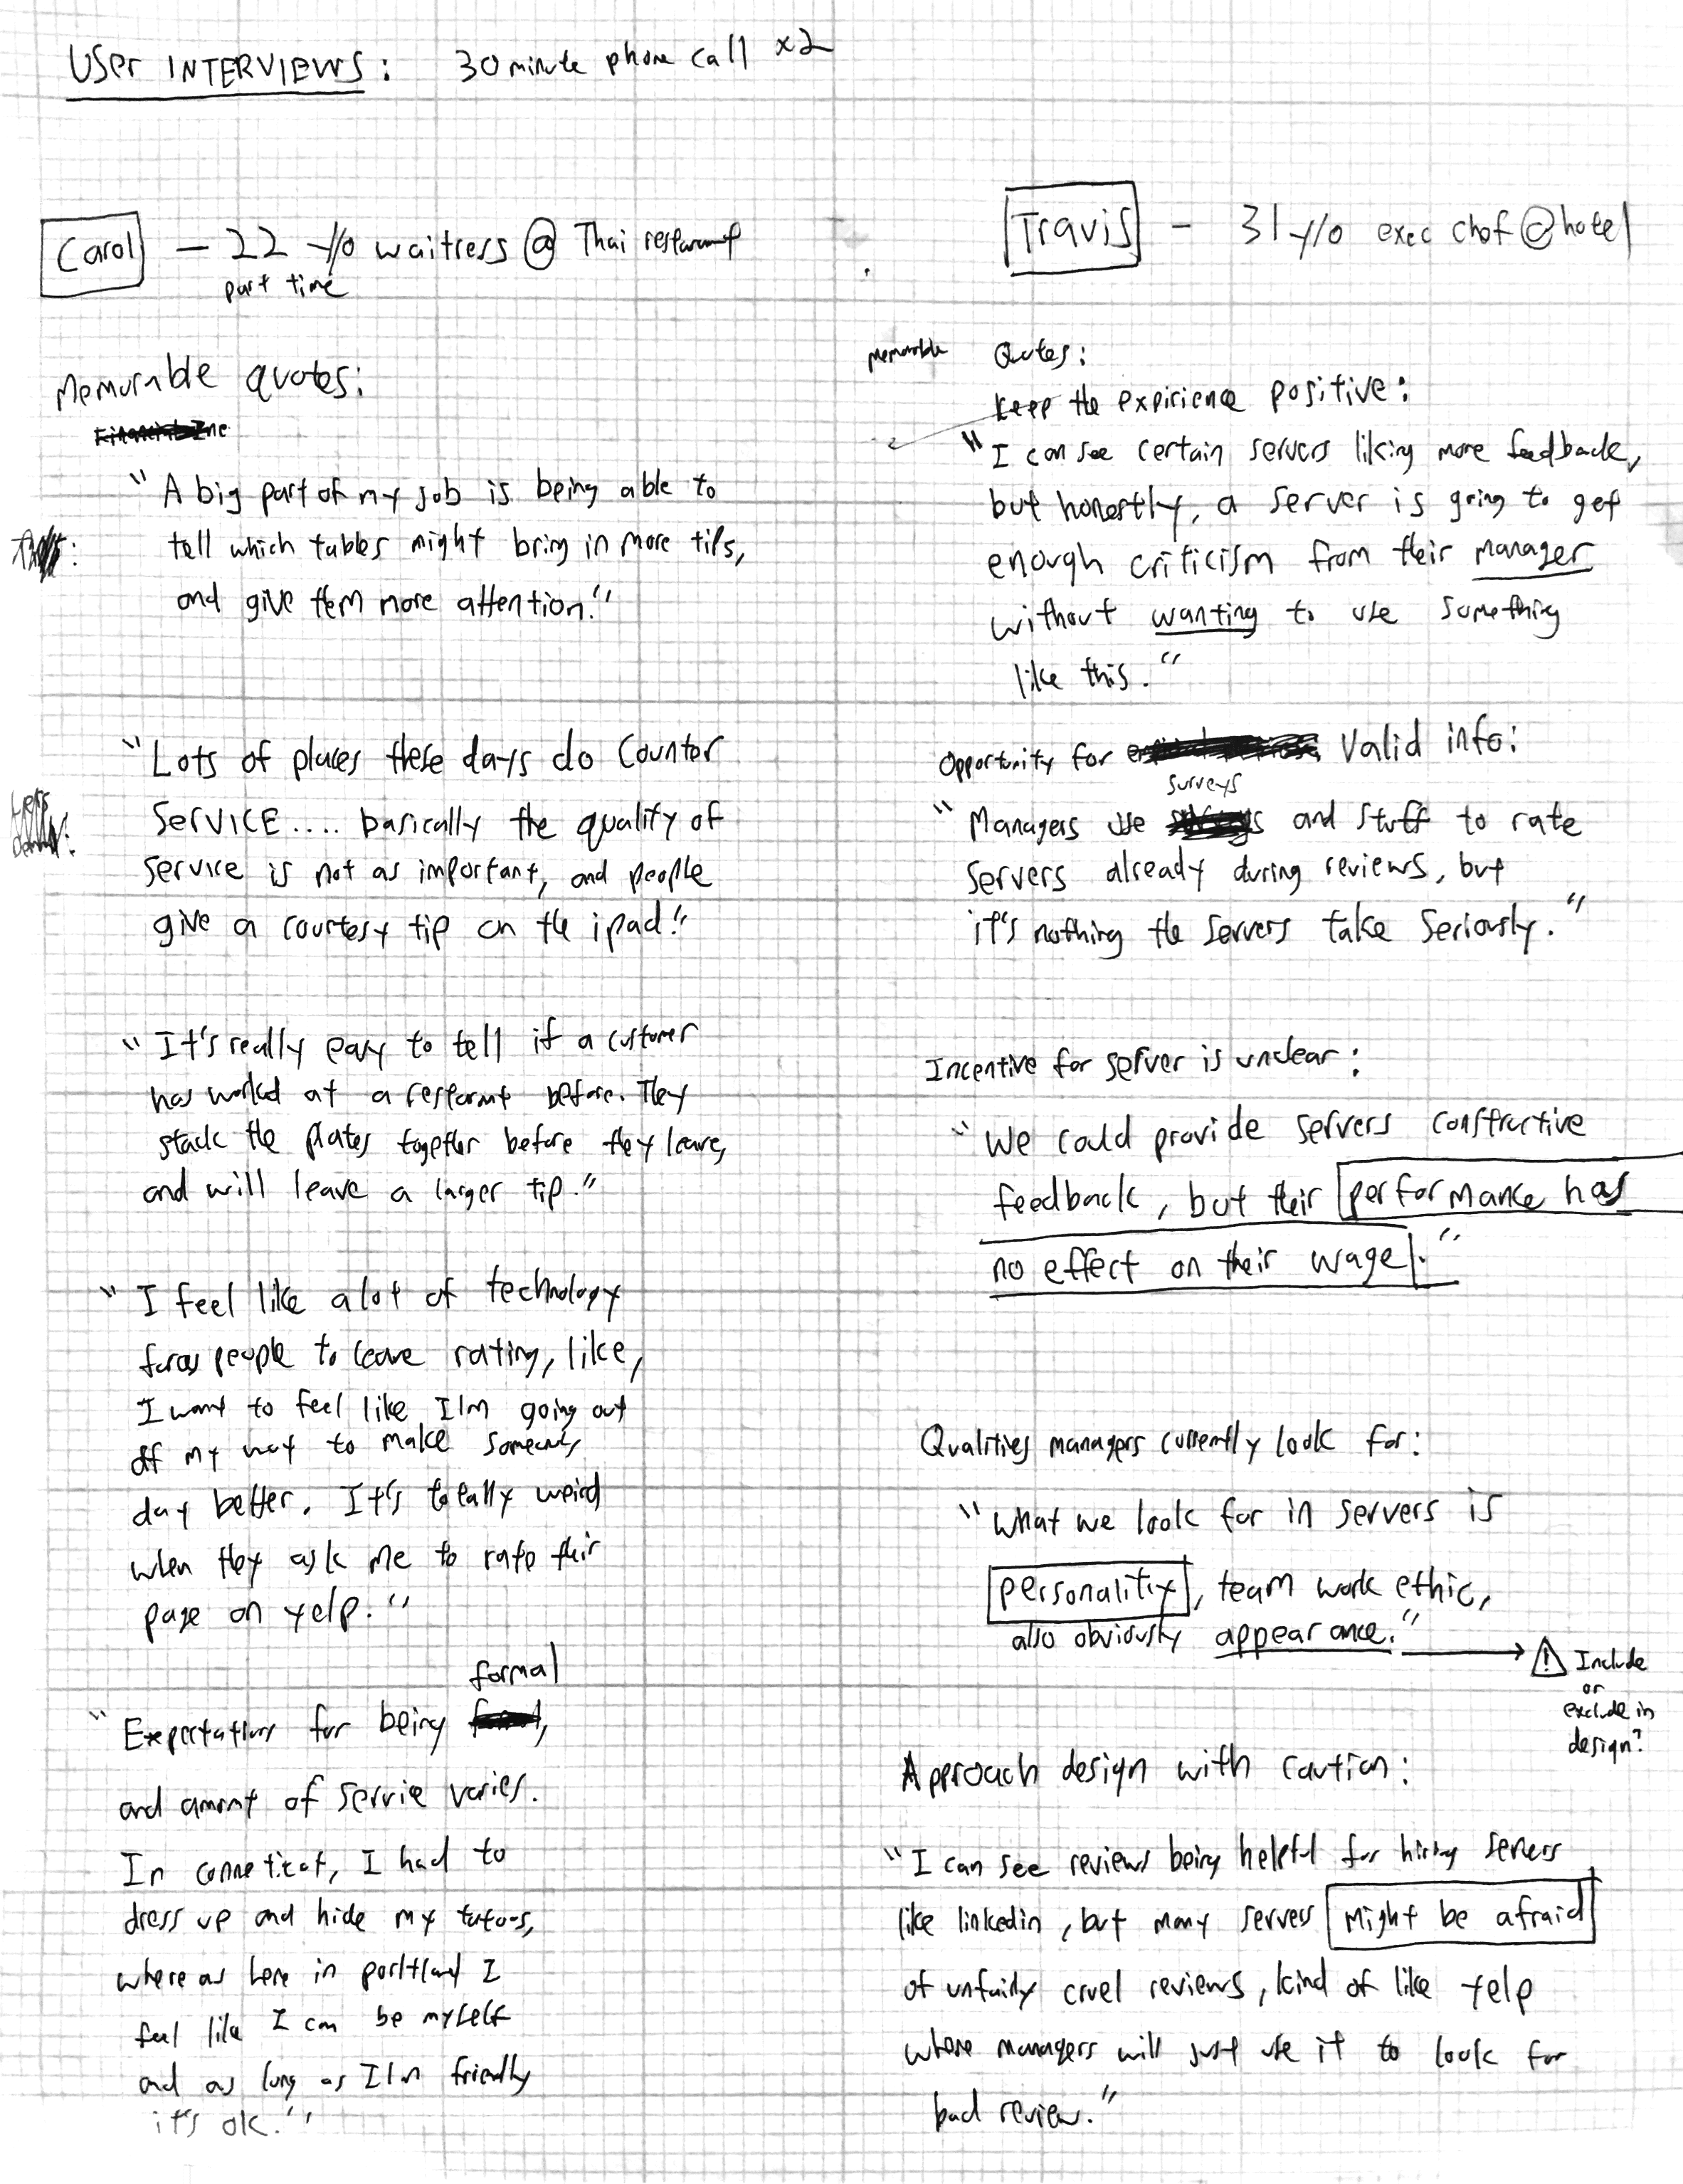 USER INTERVIEWS: 30 minute phone call x2
Carol — 22 y/o waitress @ Thai restaurant
part time
Memorable quotes:
"A big part of my job is being able to
tell which tables might bring in more tips,
and give them more attention."
"Lots of places these days do counter
service.... basically the quality of
service is not as important, and people
give a courtesy tip on the ipad."
"It's really easy to tell if a customer
has worked at a restaurant before. They
stack the plates together before they leave,
and will leave a larger tip."
"I feel like a lot of technology
forces people to leave rating, like,
I want to feel like I'm going out
of my way to make someones
day better. It's totally weird
when they ask me to rate their
page on yelp."
formal
"Expectations for being ,
and amount of service varies.
In conneticut, I had to
dress up and hide my tatoos,
where as here in portland I
feel like I can be myself
and as long as I'm friendly
it's ok."
Travis - 31 y/o exec chef @ hotel
memorable Quotes:
keep the expirience positive:
"I can see certain servers liking more feedback,
but honestly, a server is going to get
enough criticism from their manager
without wanting to use something
like this."
Opportunity for Valid info:
surveys
"Managers use and stuff to rate
servers already during reviews, but
it's nothing the servers take seriously."
Incentive for server is unclear:
"We could provide servers constructive
feedback, but their performance has
no effect on their wage."
Qualities managers currently look for:
"what we look for in servers is
personality, team work ethic,
also obviously appearance."
Include
or
exclude in
design?
Approach design with caution:
"I can see reviews being helpful for hiring servers
like linkedin, but many servers might be afraid
of unfairly cruel reviews, kind of like yelp
where managers will just use it to look for
bad review."